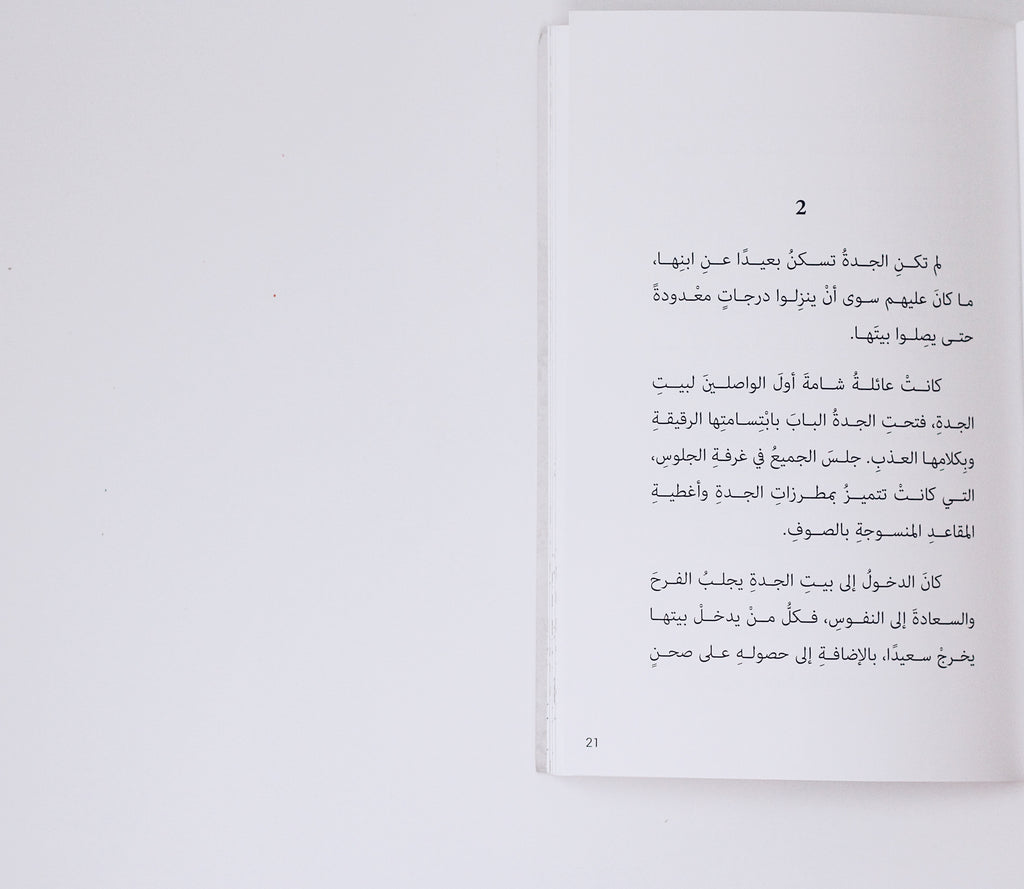 2
لم تكنِ الجدةُ تسكنُ بعيدًا عنِ ابنِها،
ما كانَ عليهم سوى أنْ ينزِلوا درجاتٍ معْدودةً
حتى يصِلوا بيتَها.
كانتْ عائلةُ شامةَ أولَ الواصلينَ لبيتِ
الجدةِ، فتحتِ الجدةُ البابَ بابْتِسامتِها الرقيقةِ
وبِكلامِها العذبِ. جلسَ الجميعُ في غرفةِ الجلوسِ،
التي كانتْ تتميزُ بمطرزاتِ الجدةِ وأغطيةِ
المقاعدِ المنسوجةِ بالصوفِ.
كانَ الدخولُ إلى بيتِ الجدةِ يجلبُ الفرحَ
والسعادةَ إلى النفوسِ، فكلُّ منْ يدخلْ بيتها
يخرجْ سعيدًا، بالإضافةِ إلى حصولهِ على صحنٍ
21